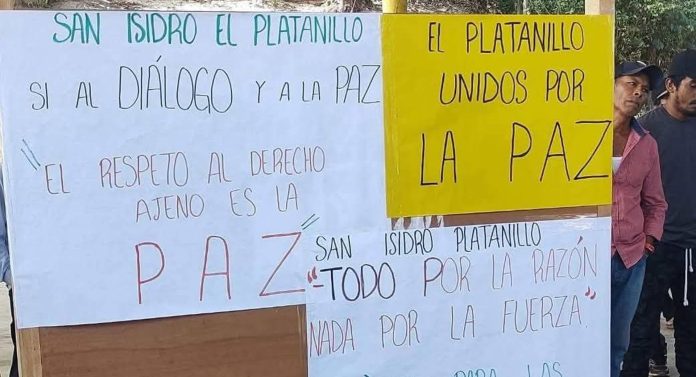 SAN ISIDRO EL PLATANILLO
SI AL DIÁLOGO Y A LA PAZ
"EL RESPETO AL DERECHO
AJENO ES LA
PAZ"
EL PLATANILLO
UNIDOS POR
LA PAZ
SAN ISIDRO PLATANILLO
"TODO POR LA RAZÓN
NADA POR LA FUERZA"
PARA LAS